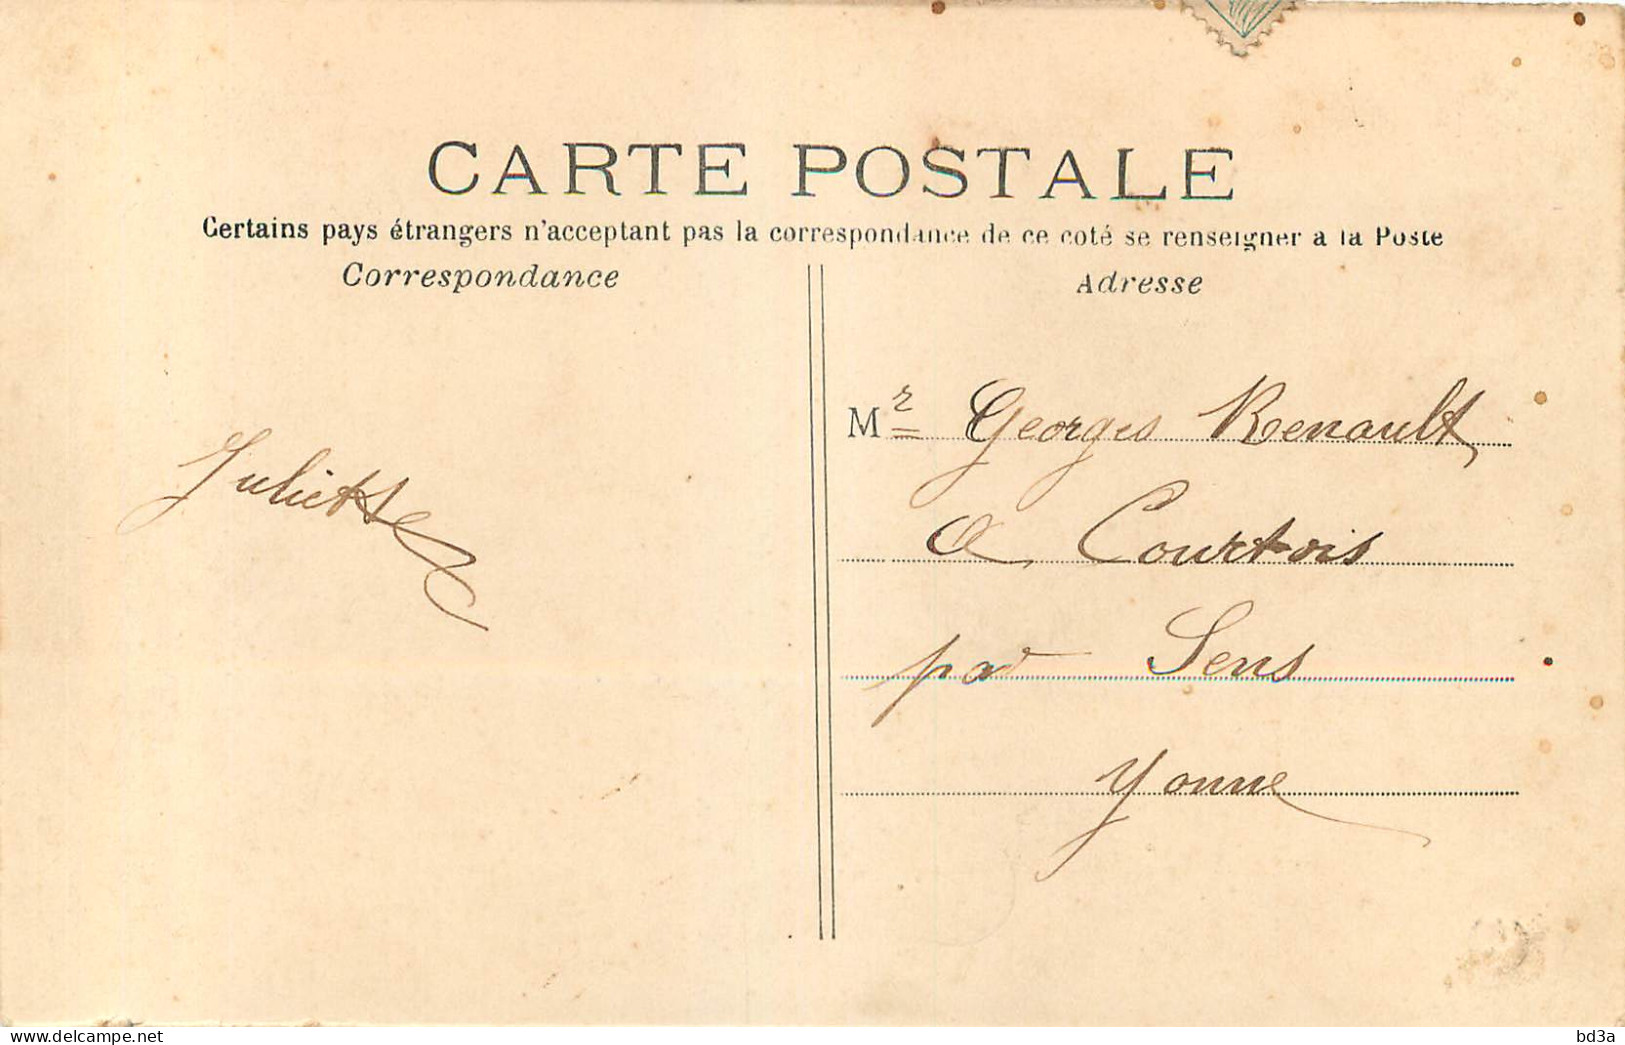 CARTE POSTALE
Certains pays étrangers n'acceptant pas la correspondance de ce coté se renseigner a la Poste
Correspondance
Adresse
Juliette
Mr Georges Renault
a Courtois
par Sens
Yonne
www.delcampe.net
bd3a